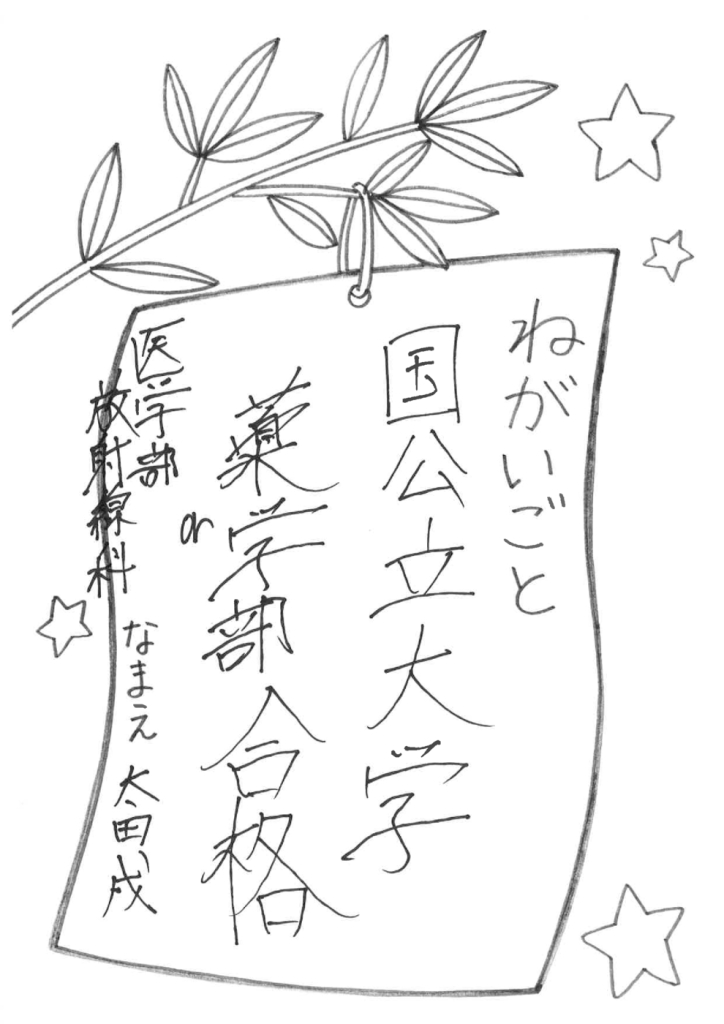 ねがいごと
国公立大学
薬学部合格
or
医学部
放射線科
なまえ 太田成